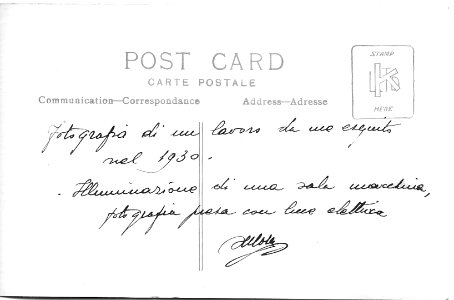 POST CARD
CARTE POSTALE
STAMP
HERE
Communication—Correspondance
Address—Adresse
fotografia di un lavoro da me eseguito
nel 1930.
Illuminazione di una sala macchina,
fotografia presa con luce elettrica